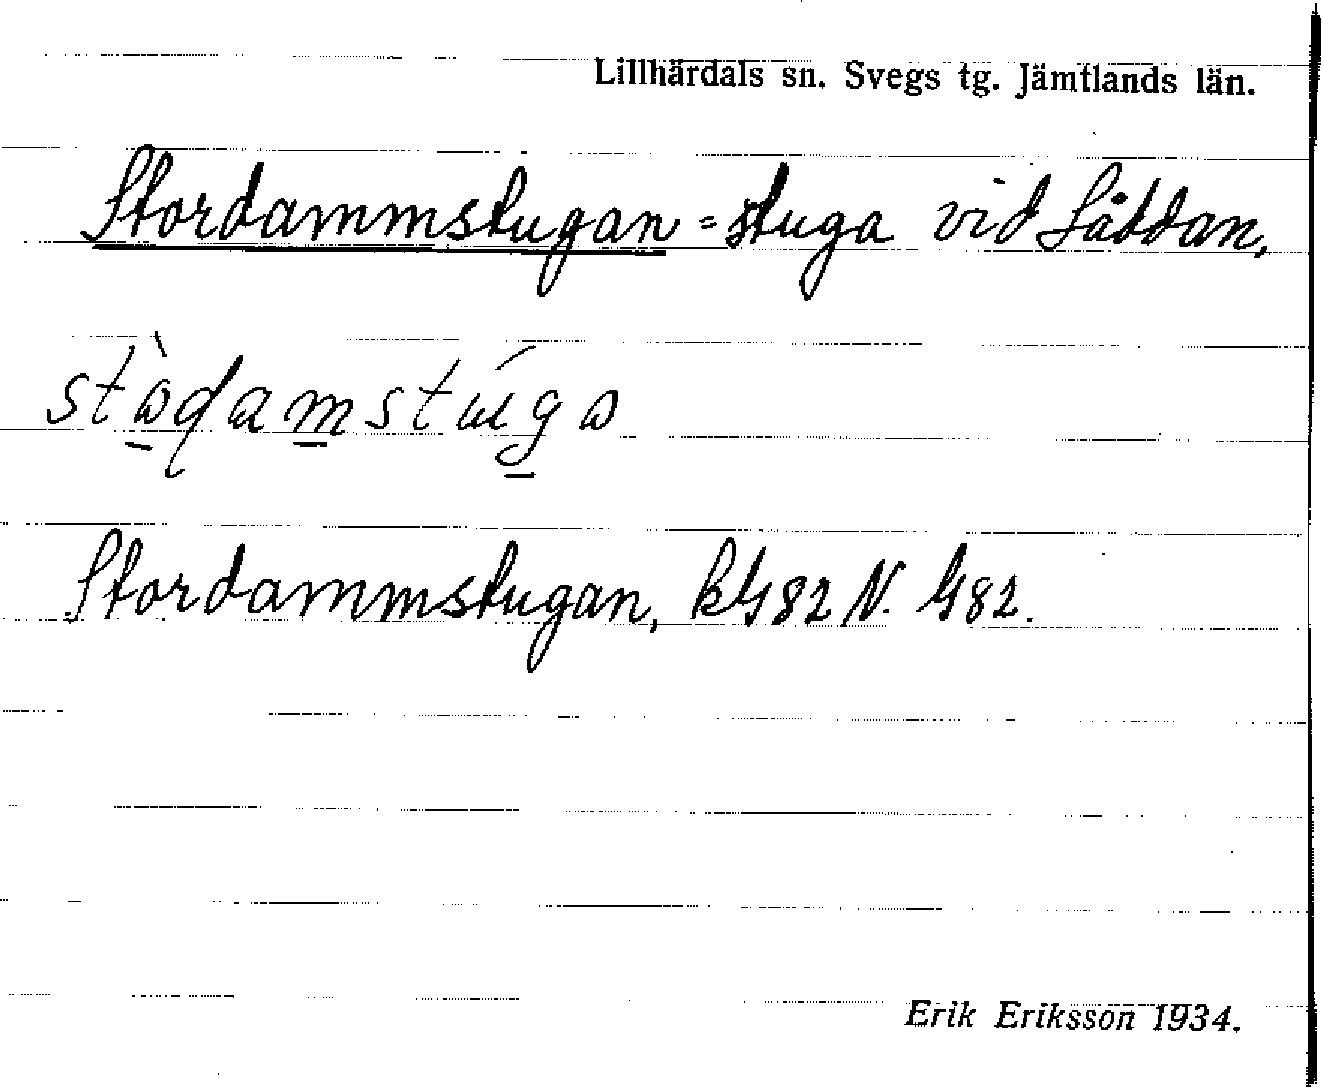 Lillhärdals sn. Svegs tg. Jämtlands län.
Stordammstugan = stuga vid Låddan,
Stordammstugan, k 982 N. 982.
Erik Eriksson 1934.